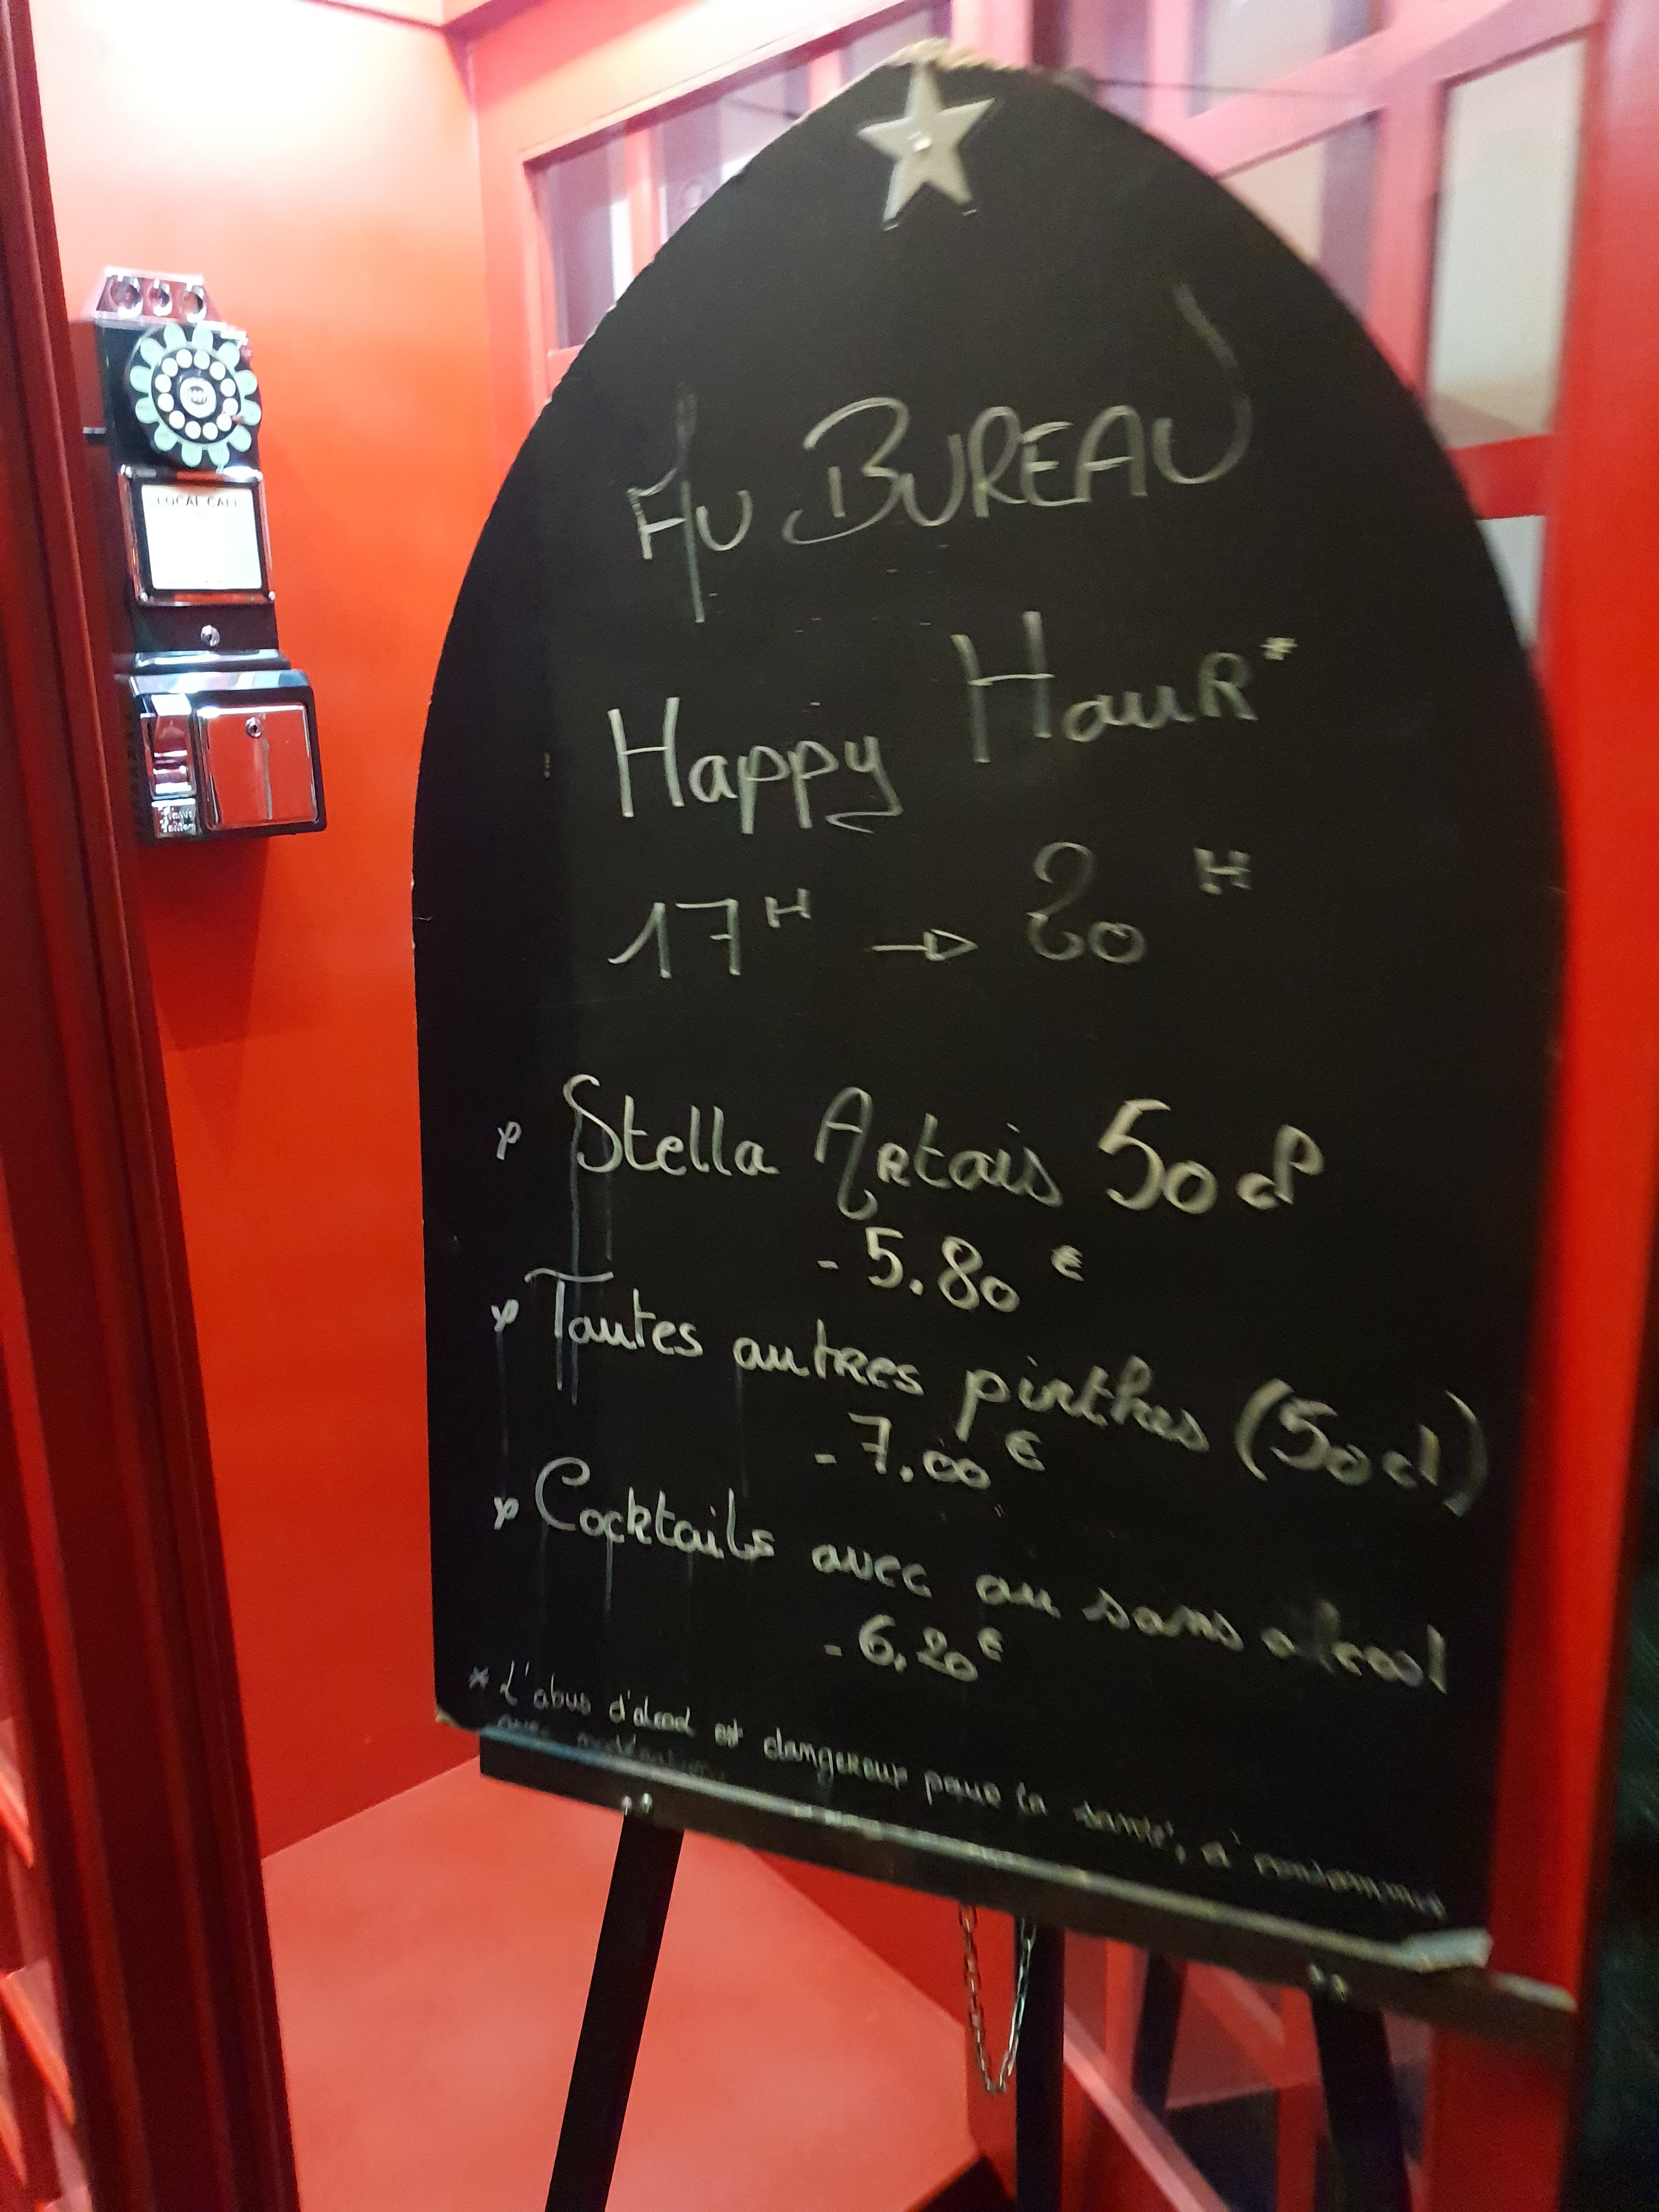 LOCAL CALL
AU BUREAU
Happy HouR*
17H → 20 H
Stella Artois 50 cl
- 5.80 €
Toutes autres pinthes (50 cl)
- 7.00 €
Cocktails avec ou sans alcool
- 6.20€
* L'abus d'alcool est dangereux pour la santé, à consommer
avec modération